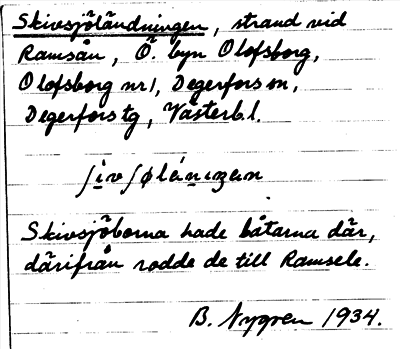 Skivsjöländningen, strand vid
Ramsån, Ö. byn Olofsborg,
Olofsborg nr 1, Degerfors sn,
Degerfors tg, Västerb. l.
ʃìvʃøländ̥ɩŋɛn
Skivsjöborna hade båtarna där,
därifrån rodde de till Ramsele.
B. Nygren 1934.